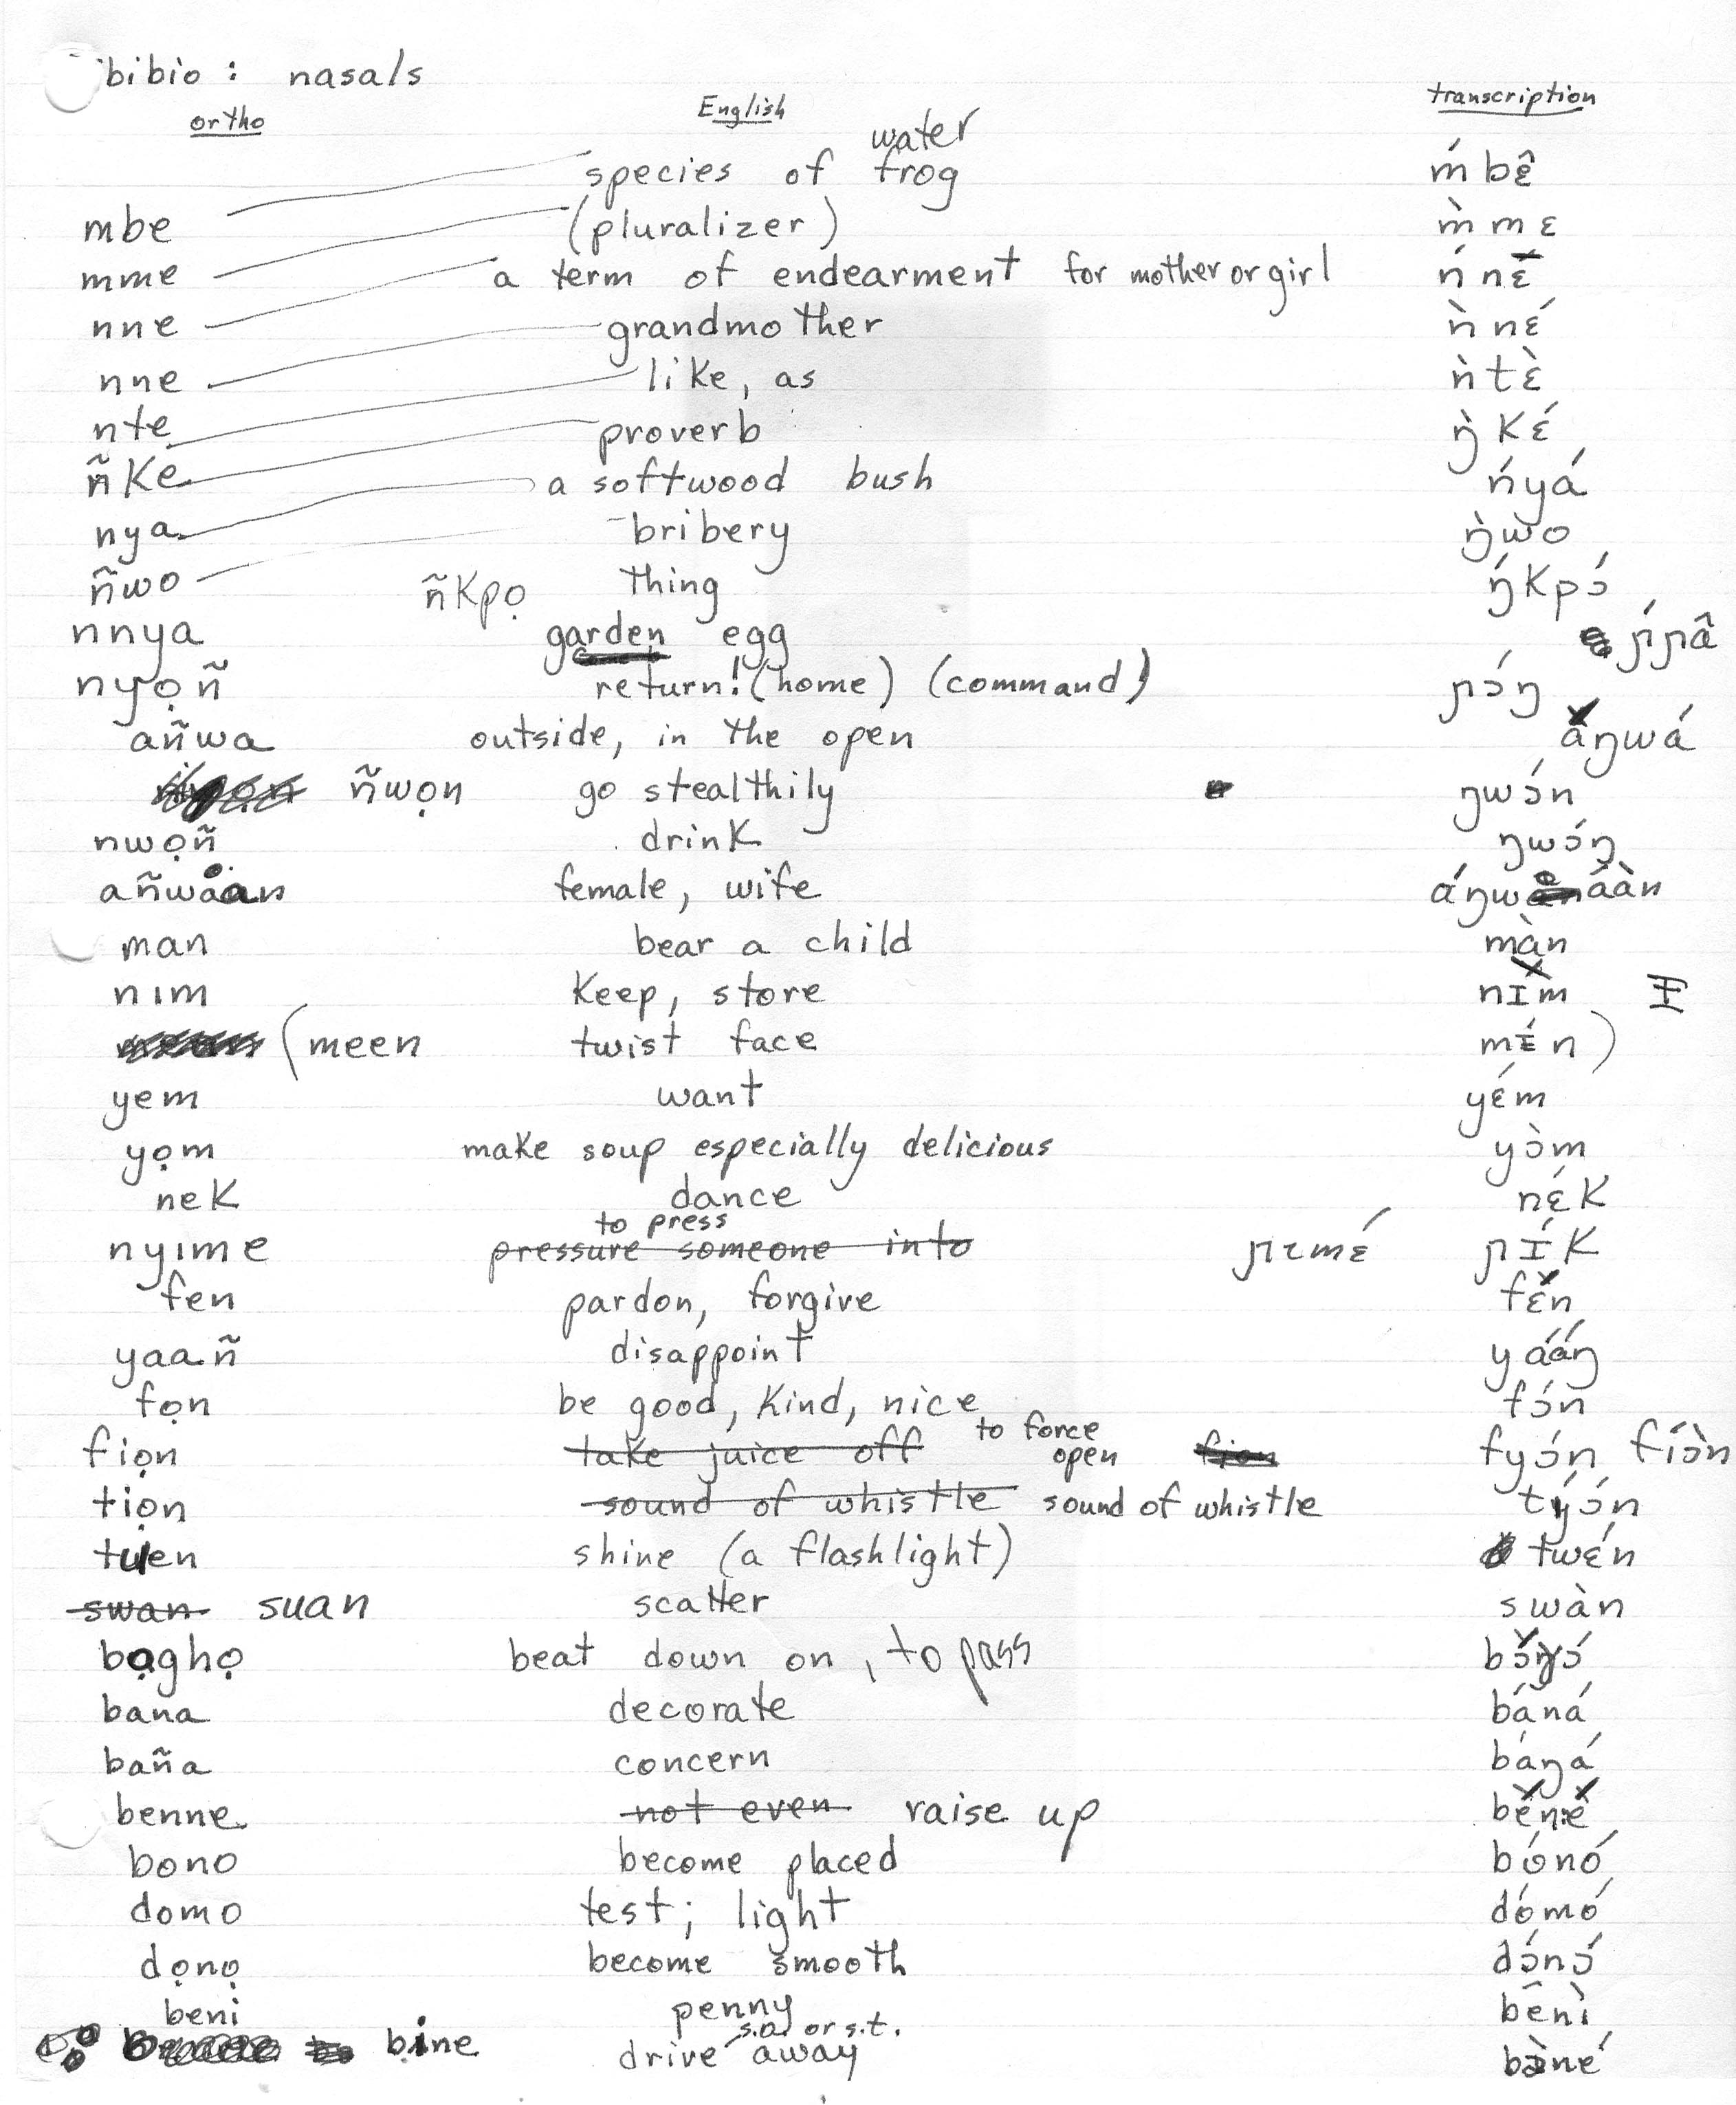 bibio : nasals
ortho English transcription
water
species of frog ḿ bɛ̂
mbe (pluralizer) m̀ mɛ
mme a term of endearment for mother or girl ń nɛ̄
nne grandmother ǹ nɛ́
nne like, as ǹ tɛ̀
nte proverb ŋ̀ kɛ́
ñke a softwood bush ńyá
nya bribery ŋ̀wo
ñwo ñkpọ thing ŋ́kpɔ́
nnya garden egg ɲ́ɲâ
nyọñ return! (home) (command) ɲɔ́ŋ
añwa outside, in the open áŋwá
ñwọn go stealthily ŋwɔ́n
nwọñ drink ŋwɔ́ŋ
añwaan female, wife áŋwáàn
man bear a child màn
nım keep, store nɪm Ɪ
(meen twist face mɨ́n)
yem want yɛ́m
yọm make soup especially delicious yɔ̀m
nek dance nɛ́k
to press
nyıme pressure someone into ɲɪmɛ́ ɲɪ́k
fen pardon, forgive fɛ̌n
yaañ disappoint yááŋ
fọn be good, kind, nice fɔ́n
to force
fiọn take juice off open fion fyɔ́n fíɔ̀n
tiọn sound of whistle sound of whistle týɔ́n
tuen shine (a flashlight) twɛ́n
swan suan scatter swàn
bọghọ beat down on, to pass bɔ́ɣɔ́
bana decorate báná
baña concern báŋá
benne not even raise up
bono become placed bónó
domo test; light dómó
dọnọ become smooth dɔ́nɔ́
beni penny bênì
s.o. or s.t.
bine drive away